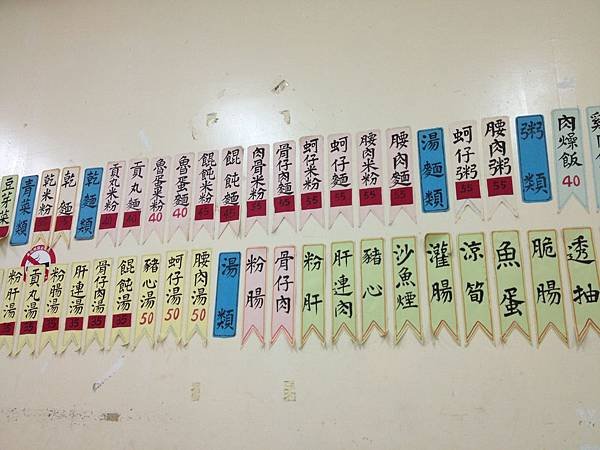 肉燥飯 40
粥類
腰肉粥 55
蚵仔粥 55
湯麵類
腰肉麵 55
腰肉米粉 55
蚵仔麵 55
蚵仔米粉 55
骨仔肉麵 55
肉骨米粉 55
餛飩麵 45
餛飩米粉 45
魯蛋麵 40
魯蛋米粉 40
貢丸麵
貢丸米粉
乾麵類
乾麵
乾米粉
青菜類
豆芽菜
透抽
脆腸
魚蛋
涼筍
灌腸
沙魚煙
豬心
肝連肉
粉肝
骨仔肉
粉腸
湯類
腰肉湯 50
蚵仔湯 50
豬心湯 50
餛飩湯 35
骨仔肉湯 35
肝連湯 35
粉腸湯 35
貢丸湯 35
粉肝湯